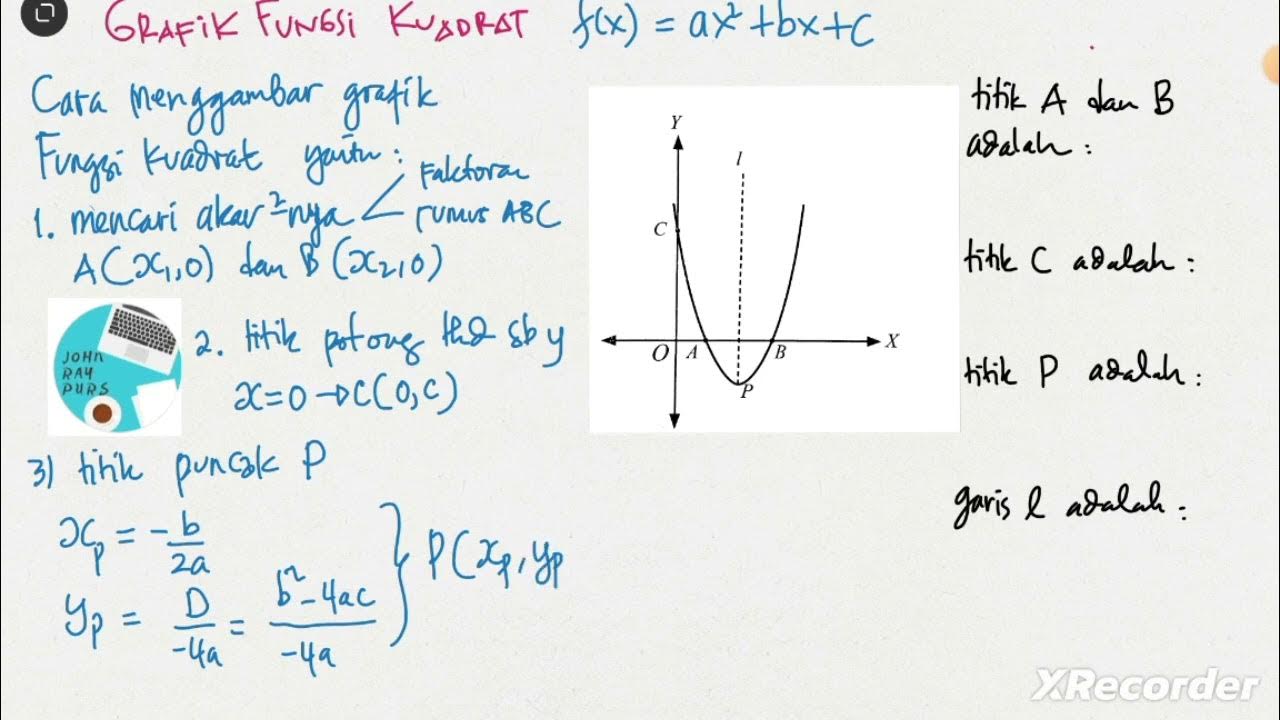 GRAFIK FUNGSI KUADRAT f(x) = ax² + bx + c
Cara menggambar grafik
Fungsi kuadrat yaitu :
1. mencari akar²nya < Faktoran
rumus ABC
A(x₁,0) dan B(x₂,0)
JOHN
RAY
PURS
2. titik potong thd sb y
x=0 → C(0,c)
3) titik puncak P
xₚ = -b/2a
yₚ = D/-4a = b²-4ac/-4a
} P(xₚ, yₚ
Y
l
C
O
A
B
X
P
titik A dan B
adalah :
titik C adalah :
titik P adalah :
garis l adalah :
XRecorder